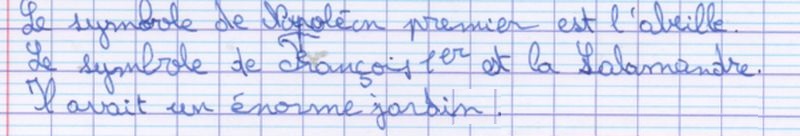 Le symbole de Napoléon premier est l'abeille.
Le symbole de François 1er est la Salamandre.
Il avait un énorme jardin.